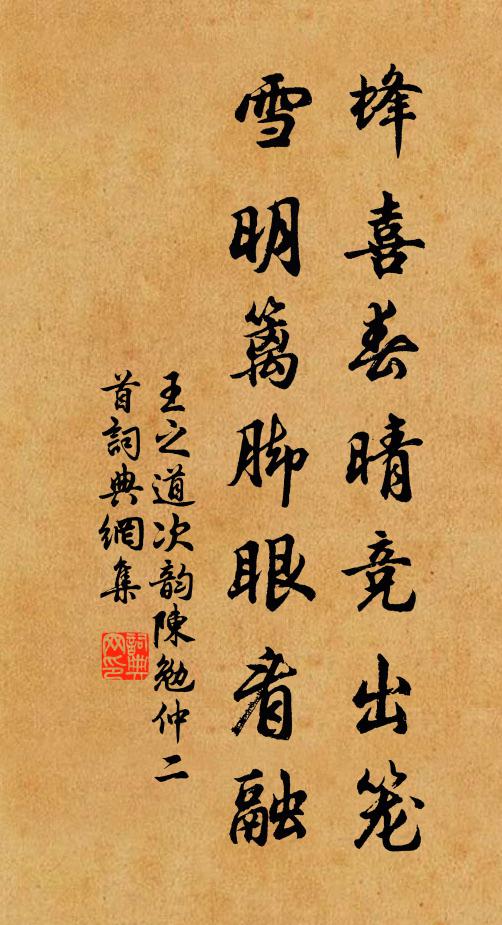 蜂喜春晴竞出笼
雪明篱脚眼看融
王之道次韵陳勉仲二
首詞典網集
詞典
网印